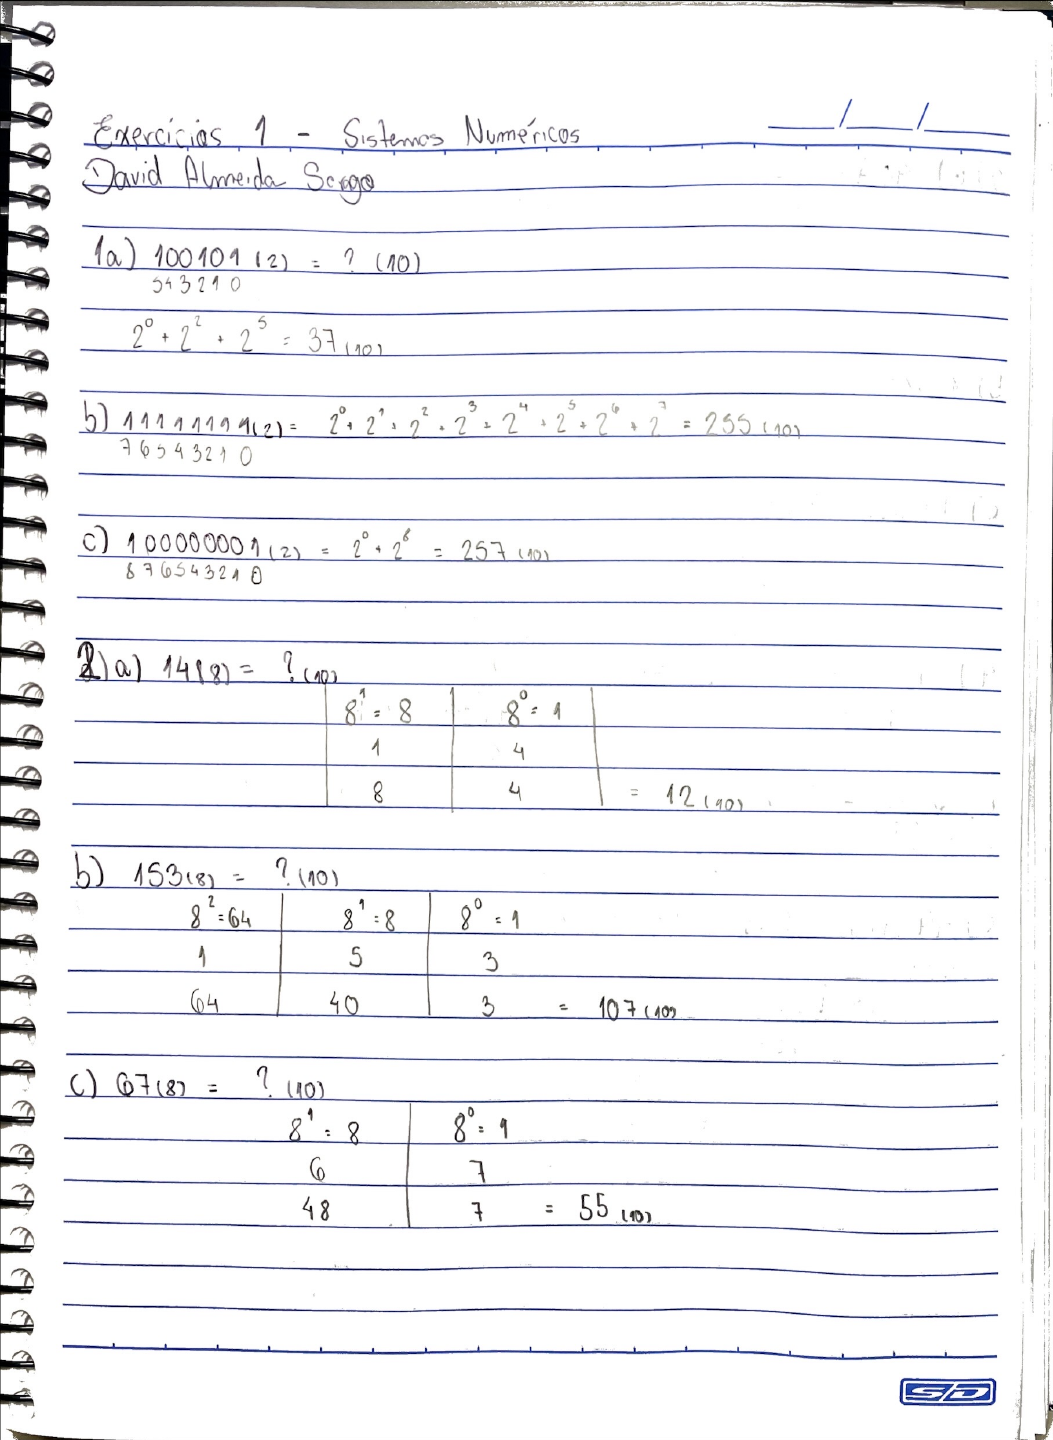 Exercícios 1 - Sistemas Numéricos
__/__/__
David Almeida
1a) 100101 (2) = ? (10)
543210
2⁰ + 2² + 2⁵ = 37 (10)
b) 11111111(2) = 2⁰ + 2¹ + 2² + 2³ + 2⁴ + 2⁵ + 2⁶ + 2⁷ = 255 (10)
76543210
c) 100000001 (2) = 2⁰ + 2⁸ = 257 (10)
876543210
2)a) 14(8) = ? (10)
8¹ = 8 8⁰ = 1
1 4
8 4 = 12 (10)
b) 153(8) = ? (10)
8² = 64 8¹ = 8 8⁰ = 1
1 5 3
64 40 3 = 107 (10)
c) 67(8) = ? (10)
8¹ = 8 8⁰ = 1
6 7
48 7 = 55 (10)
S/D